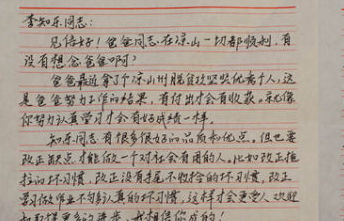 李知乐同志:
见信好！爸爸同志在凉山一切都顺利，有
没有想念爸爸啊？
爸爸最近拿了凉山州脱贫攻坚先进个人，这
是爸爸努力工作的结果，有付出才会有收获。就像
你努力认真学习才会有好成绩一样。
知乐同志有很多很好的品质和优点，但也要
改正缺点才能做一个对社会有用的人。比如改正拖
拉的坏习惯，改正没有手尾不收拾的坏习惯，改正
学习做作业不够认真的坏习惯，这样才会更受人欢迎
的，我相信你成的！